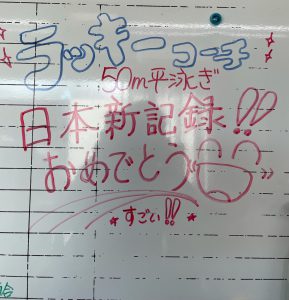 ラッキーコーチ
50m平泳ぎ
日本新記録!!
おめでとう
すごい!!